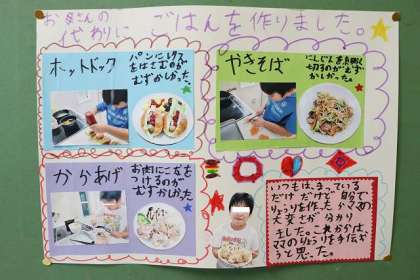 お母さんの
代わりに
ごはんを作りました。
ホットドック
パンにいれて
をはさむのが
むずかしかった。
やきそば
にんじんを
切るのがむず
かしかった。
からあげ
お肉にこなを
つけるのが
むずかしかった
いつもは、まっている
だけだけど、自分で
りょうりを作ったからママの
大変さが分かり
ました。これからは、
ママのりょうりを手伝お
うと思った。